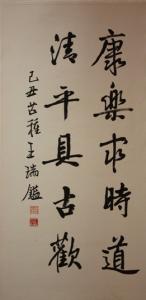 康樂時道
清平具古歡
己丑芒種王瑞鑑